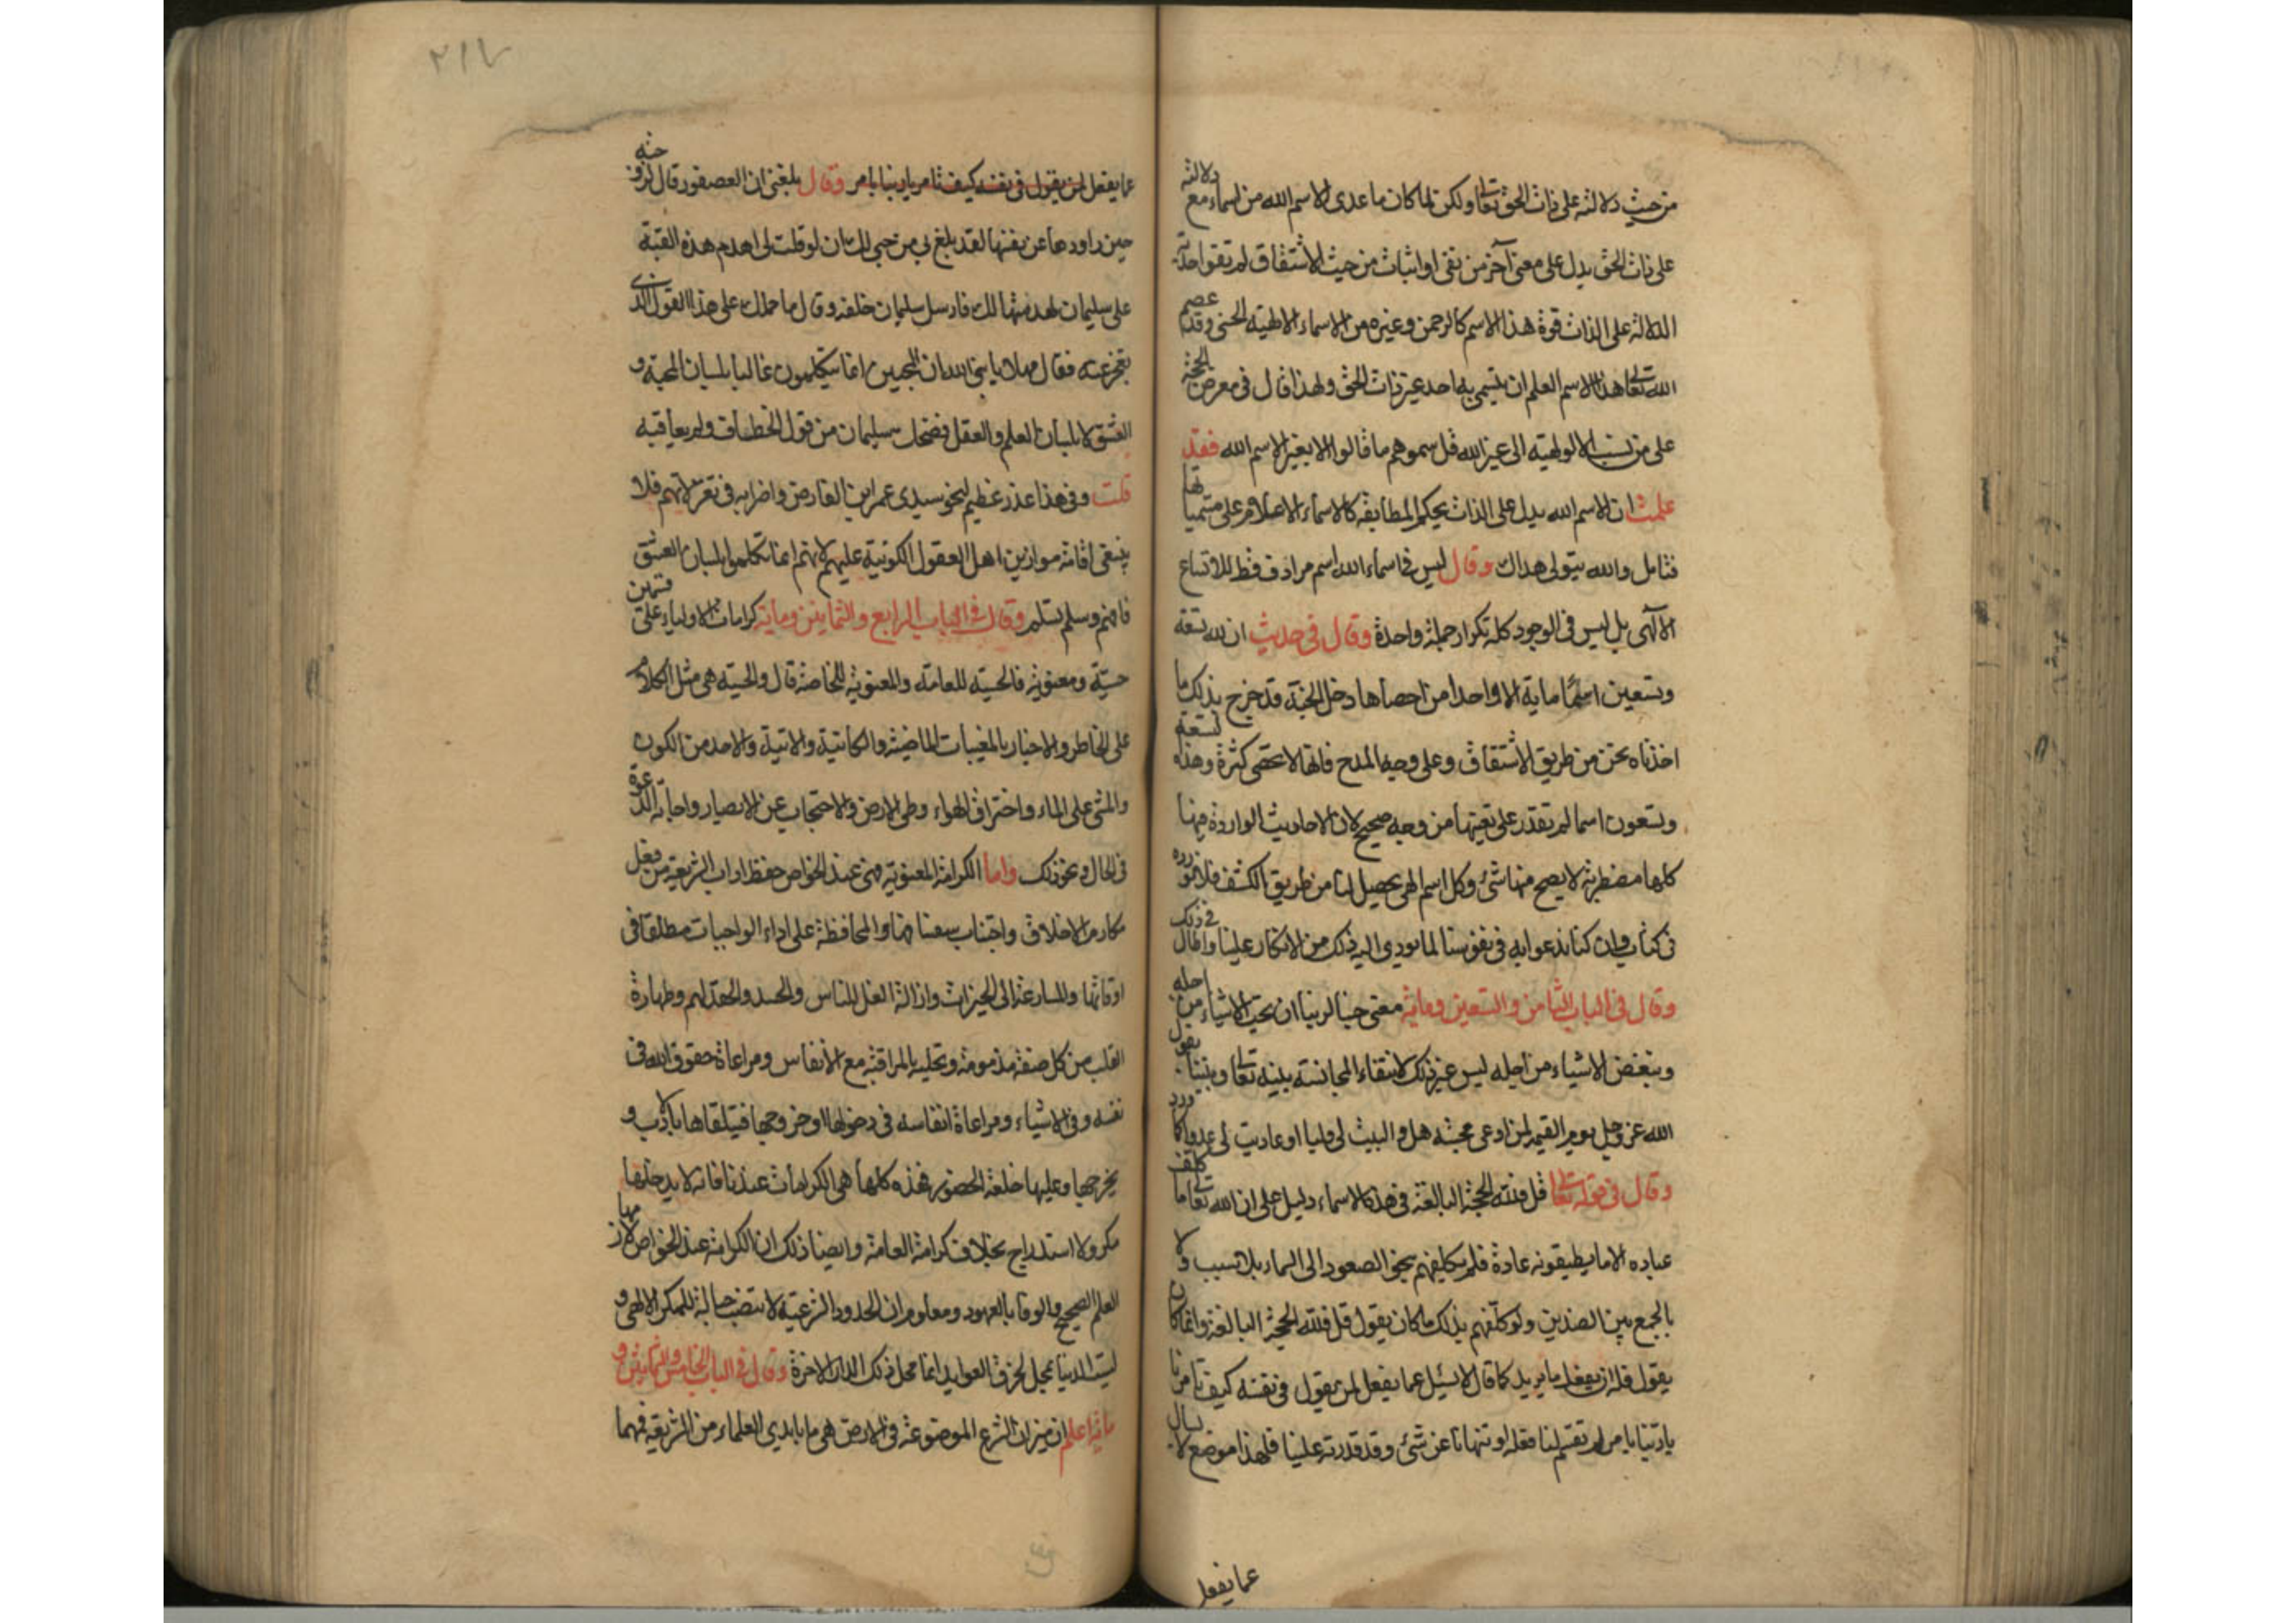 من حيث دلالته على ذات الحق تعالى ولكن لما كان ما عدى الاسم الله من اسماء مع دلالته
على ذات الحق يدل على معنى آخر من نفى او اثبات من حيث الاشتقاق لم تقو احدية
الدلالة على الذات قوة هذا الاسم كالرحمن وغيره من الاسماء الالهية الحسنى وقد عصم
الله تعالى هذا الاسم العلم ان يتسمى به احد غير ذات الحق ولهذا قال فى معرض الحجة
على من نسب الالوهية الى غير الله قل سموهم ما قالوا الا بغير الاسم الله فقد
علمت ان الاسم الله يدل على الذات بحكم المطابقه كالاسماء الاعلام على مسمياتها
فتامل والله يتولى هداك وقال ليس فى اسماء الله اسم مرادف قط للاتساع
الآلهى بل ليس فى الوجود كله تكرار جملة واحدة وقال فى حديث ان لله تسعة
وتسعين اسمًا ماية الا واحدا من احصاها دخل الجنة قد خرج بذلك ما
اخذناه نحن من طريق الاشتقاق وعلى وجه المدح فانها لا تحصى كثرة وهذه التسعة
وتسعون اسما لم نقدر على تعيينها من وجه صحيح لان الاحاديث الواردة فيها
كلها مضطربة لا يصح منها شئ وكل اسم الهى يحصل لنا من طريق الكشف فلا نورده
فى كتاب وان كنا ندعوا به فى نفوسنا لما يودى اليه ذلك من الانكار علينا واطال فى ذلك
وقال فى الباب الثامن والتسعين وماية معنى حبنا لربنا ان نحب الاشياء من اجله
ونبغض الاشياء من اجله ليس غير ذلك لانتفاء المجانسة بينه تعالى وبيننا يقول
الله عز وجل يوم القيمه لمن ادعى محبته هل واليت لى وليا او عاديت لى عدوا كما ورد
وقال فى قوله تعالى قل فلله الحجة البالغة فى هذه الاسماء دليل على ان الله تعالى ما كلف
عباده الا ما يطيقونه عادة فلم يكلفهم بنحو الصعود الى السماء بلا سبب ولا
بالجمع بين الضدين ولو كلّفهم بذلك ما كان يقول قل فلله الحجة البالغة وانما كان
يقول فله ان يفعل ما يريد كما قال لا يسئل عما يفعل لمن يقول فى نفسه كيف تامرنا
يا ربنا بامر لم تقسم لنا فعله او تنهانا عن شئ وقد قدرته علينا فلهذا موضع لا يسال
عما يفعل
٢١٧
عما يفعل لمن يقول فى نفسه كيف تامر يا ربنا بامر وقال بلغنى ان العصفور قال لزوجته
حين راودها عن نفسها لقد بلغ بى من حبى لك ان لو قلت لى اهدم هذه القبة
على سليمان لهدمتها لك فارسل سليمان خلفه وقال ما حملك على هذا القول الذى
فقال مهلا يا نبى الله ان المحبين انما يتكلمون غالبا بلسان المحبة و
العشق لا بلسان العلم والعقل فضحك سليمان من قول الخطاف ولم يعاقبه
قلت وفى هذا عذر عظيم لنحو سيدى عمر ابن الفارض واضرابه فى تغزلاتهم فلا
ينبغى اقامة موازين اهل العقول الكونية عليهم لانهم انما تكلموا بلسان العشق
فافهم وسلم تسلم وقال فى الباب الرابع والثمانين وماية كرامات الاولياء على قسمين
حسّية ومعنوية فالحسية للعامة والمعنوية للخاصة قال والحسية هى مثل الكلام
على الخاطر والاخبار بالمغيبات الماضية والكاينية والاتية والاخذ من الكون
والمشى على الماء واختراق الهواء وطى الارض والاحتجاب عن الابصار واجابة الدعوة
فى الحال ونحو ذلك واما الكرامة المعنوية فهى عند الخواص حفظ اداب الشريعة من فعل
مكارم الاخلاق واجتناب سفسافها والمحافظة على اداء الواجبات مطلقا فى
اوقاتها والمسارعة الى الخيرات وازالة الغل للناس والحسد والحقد لهم وطهارة
القلب من كل صفة مذمومة وتحليه بالمراقبة مع الانفاس ومراعاة حقوق الله فى
نفسه وفى الاشياء ومراعاة انفاسه فى دخولها وخروجها فيتلقاها بالادب و
يخرجها وعليها خلعة الحضور فهذه كلها هى الكرامات عندنا فانه لا يدخلها
مكر ولا استدراج بخلاف كرامة العامة وايضا ذلك ان الكرامة عند الخواص لازمها
العلم الصحيح والوفا بالعهود ومعلوم ان الحدود الشرعية لا تنصب حبالة للمكر الالهى و
ليست الدنيا بمحل لخرق العوايد انما محل ذلك الدار الاخرة وقال فى الباب الخامس والثمانين و
ماية اعلم ان ميزان الشرع الموضوعة فى الارض هى ما بايدى العلماء من الشريعة فمهما